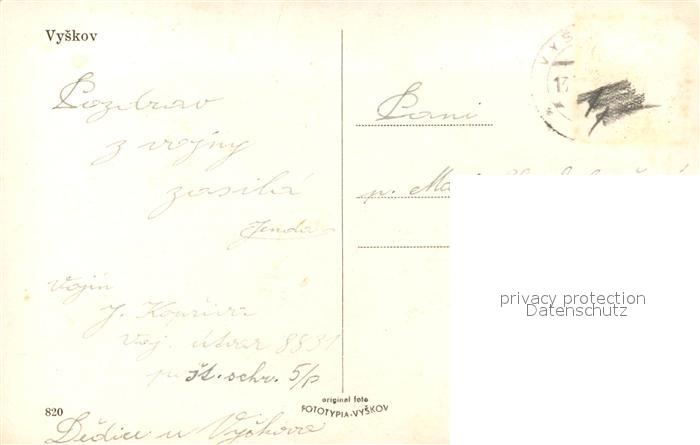 Vyškov
Pozdrav
z vojny
zasílá
Jenda
Vojín
J.
Voj. útvar 8831
p. št. schr. 5/p
Dědice u Vyškova
820
original foto
FOTOTYPIA-VYŠKOV
VYŠ
13
Paní
p.
privacy protection
Datenschutz